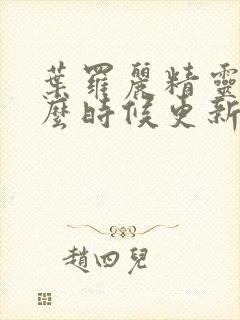 葉羅麗精靈
麼時候更新
趙四兒